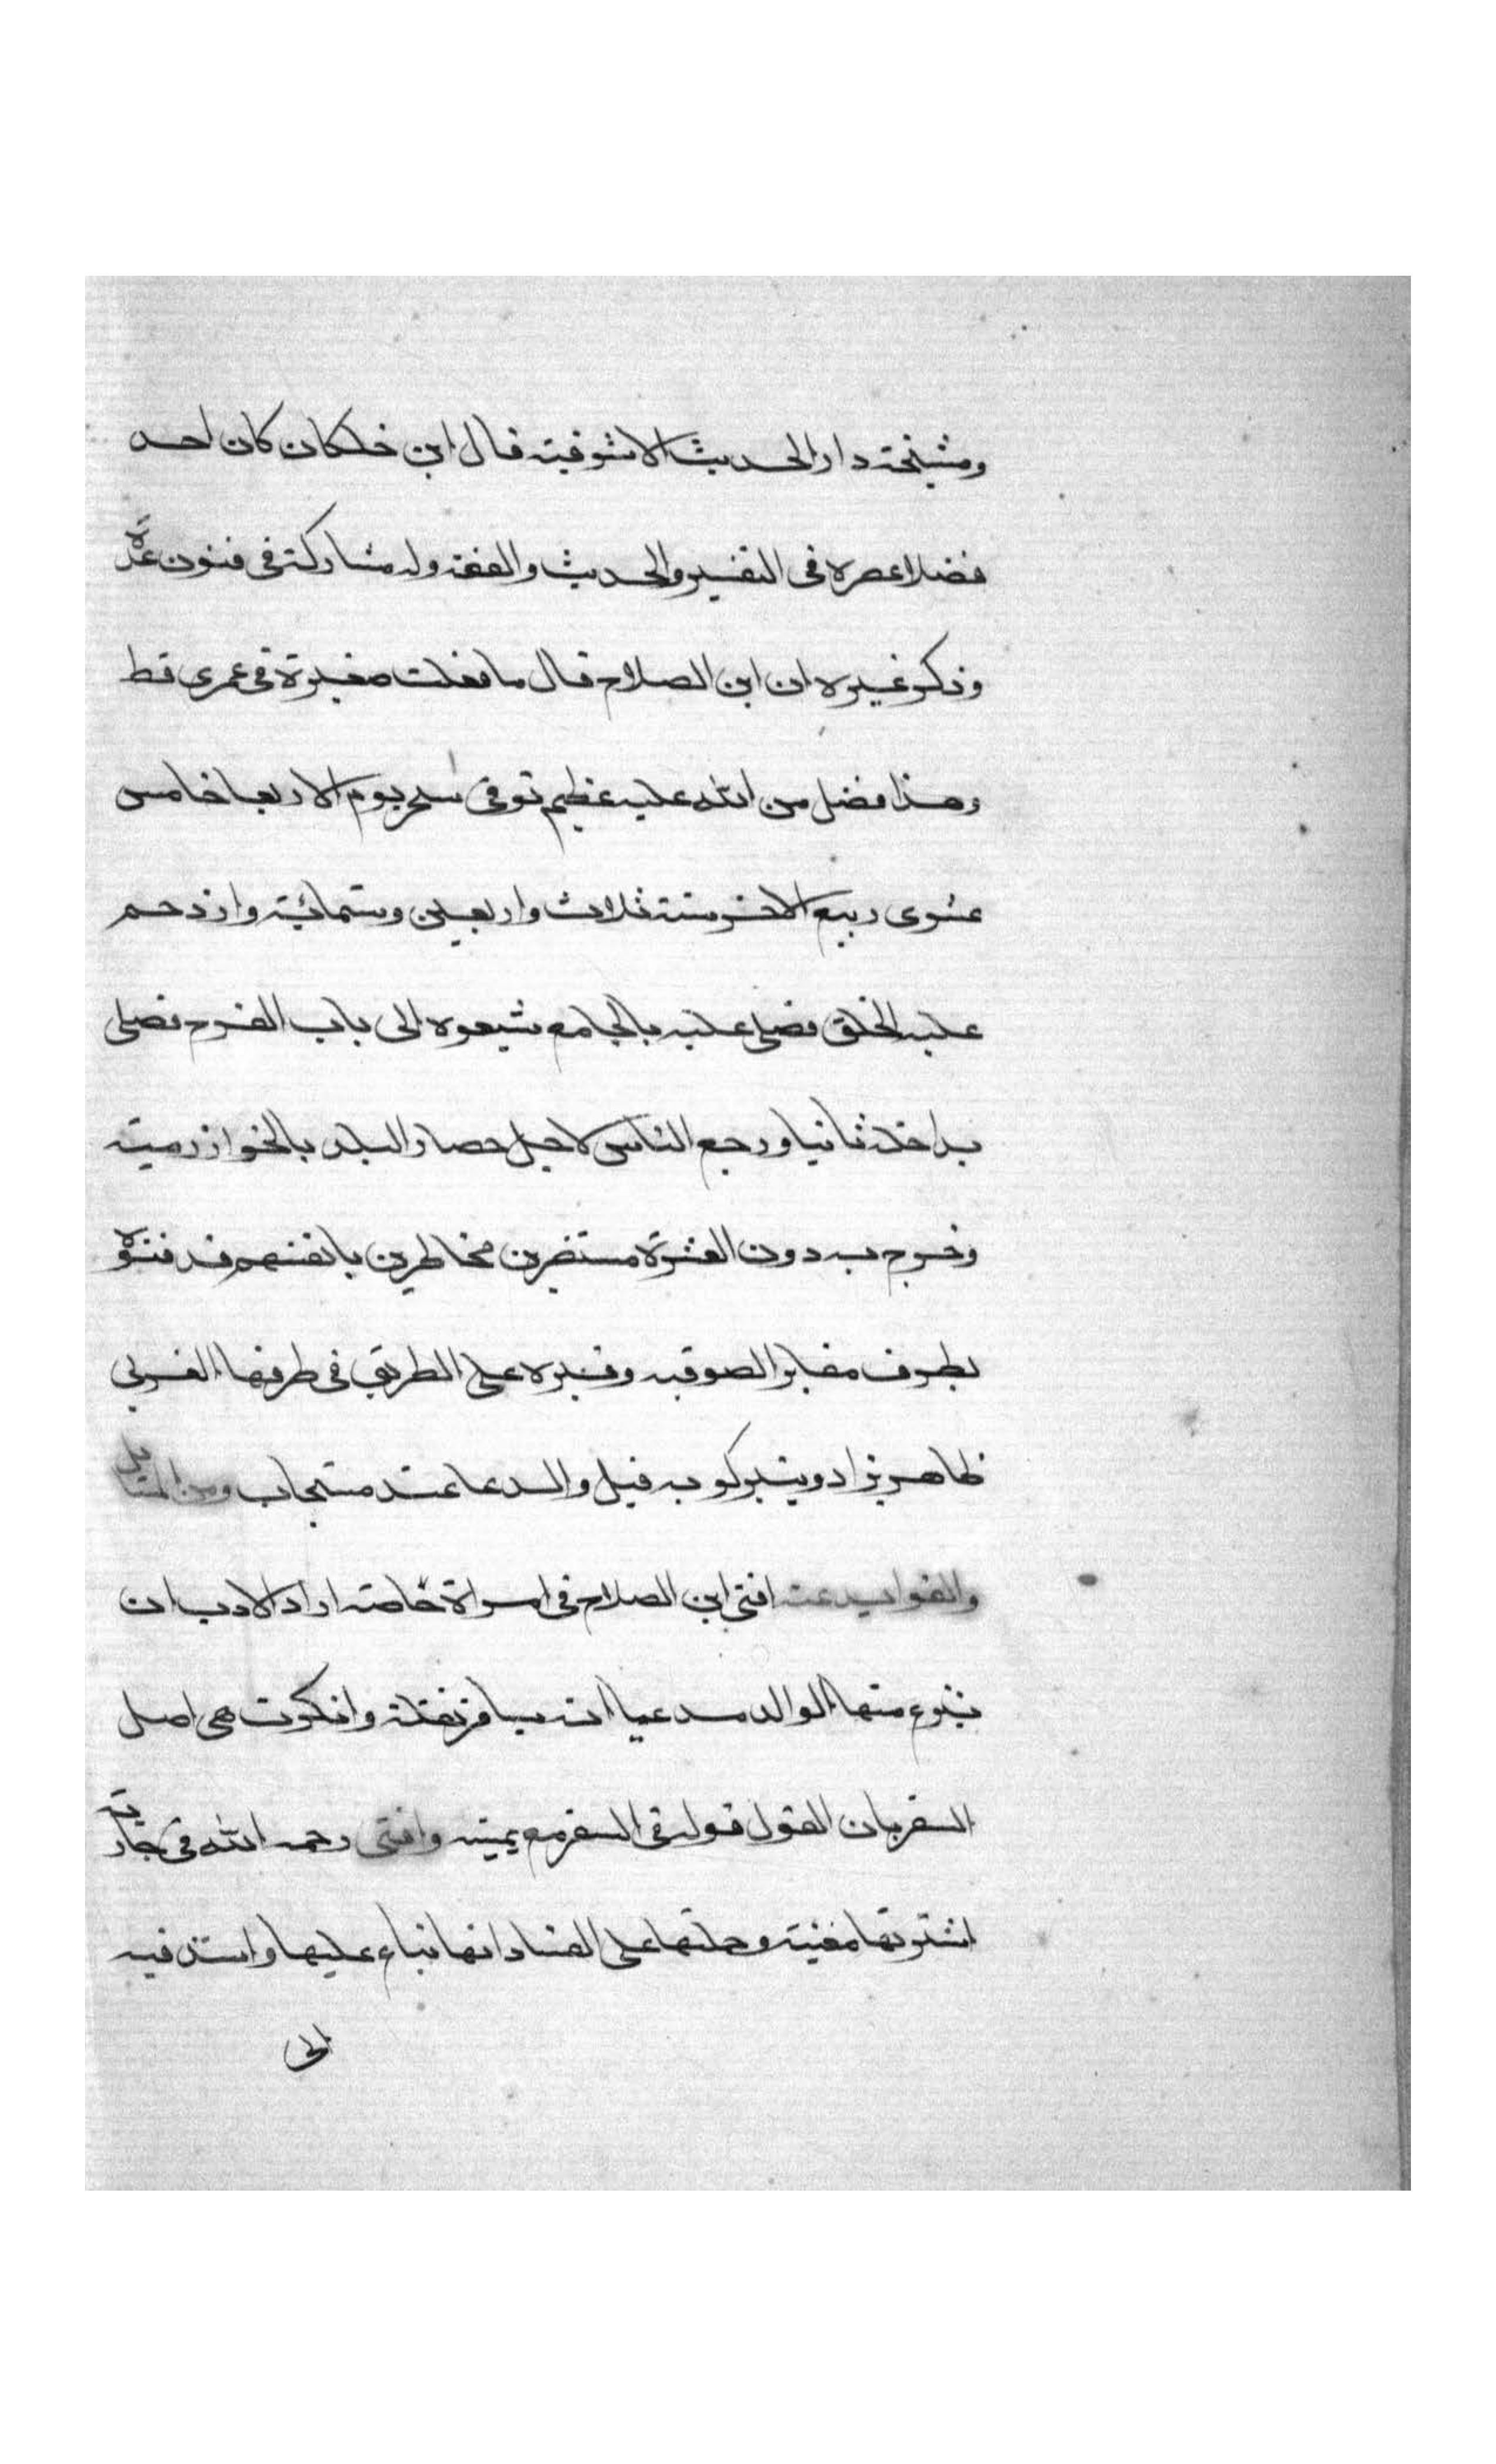 ومشيخة دار الحديث الاشرفية قال ابن خلكان كان احد
فضلا عصره فى التفسير والحديث والفقه وله مشاركة فى فنون عدة
وذكر غيره ان ابن الصلاح قال ما فعلت صغيرة فى عمرى قط
وهذا فضل من الله عليه عظيم توفى سحر يوم الاربعا خامس
عشرى ربيع الاخر سنة ثلاث واربعين وستمائية وازدحم
عليه الخلق فصلى عليه بالجامع شيعوه الى باب الفرج فصلى
بداخله ثانيا ورجع الناس لاجل حصار البلد بالخوارزمية
وخرج به دون العشرة مستضرين مخاطرين بانفسهم فدفنوه
بطرف مقابر الصوفيه وقبره على الطريق فى طرفها الغربى
ظاهر يزار ويتبرك به قيل والدعا عنده مستجاب ومن المسايل
والفوايد عنه افتى ابن الصلاح فى امراة خاصه اراد الاب ان
ينزع منها الولد مدعيا انه يسافر نقلة وانكرت هى اصل
السفر بان القول قوله فى السفر مع يمينه وافتى رحمه الله فى جارية
اشترتها مغنية وحملتها على الفساد انها تباع عليها واستد فيه
الى